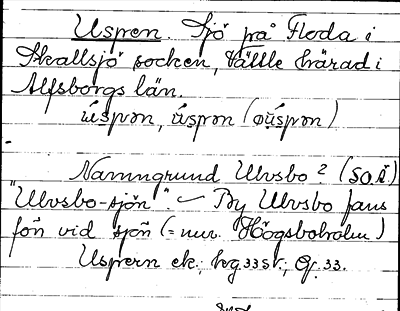 Uspen. Sjö på Floda i
Skallsjö socken, Vättle härad i
Älfsborgs län.
úspən, úspən (ou̯spən)
Namngrund Ulvsbo? (SOÄ.)
"Ulvsbo-sjön". By Ulvsbo fans
förr vid sjön (= nuv. Högsboholm.)
Uspern ek.; hvg 33 st.; Gf. 33.